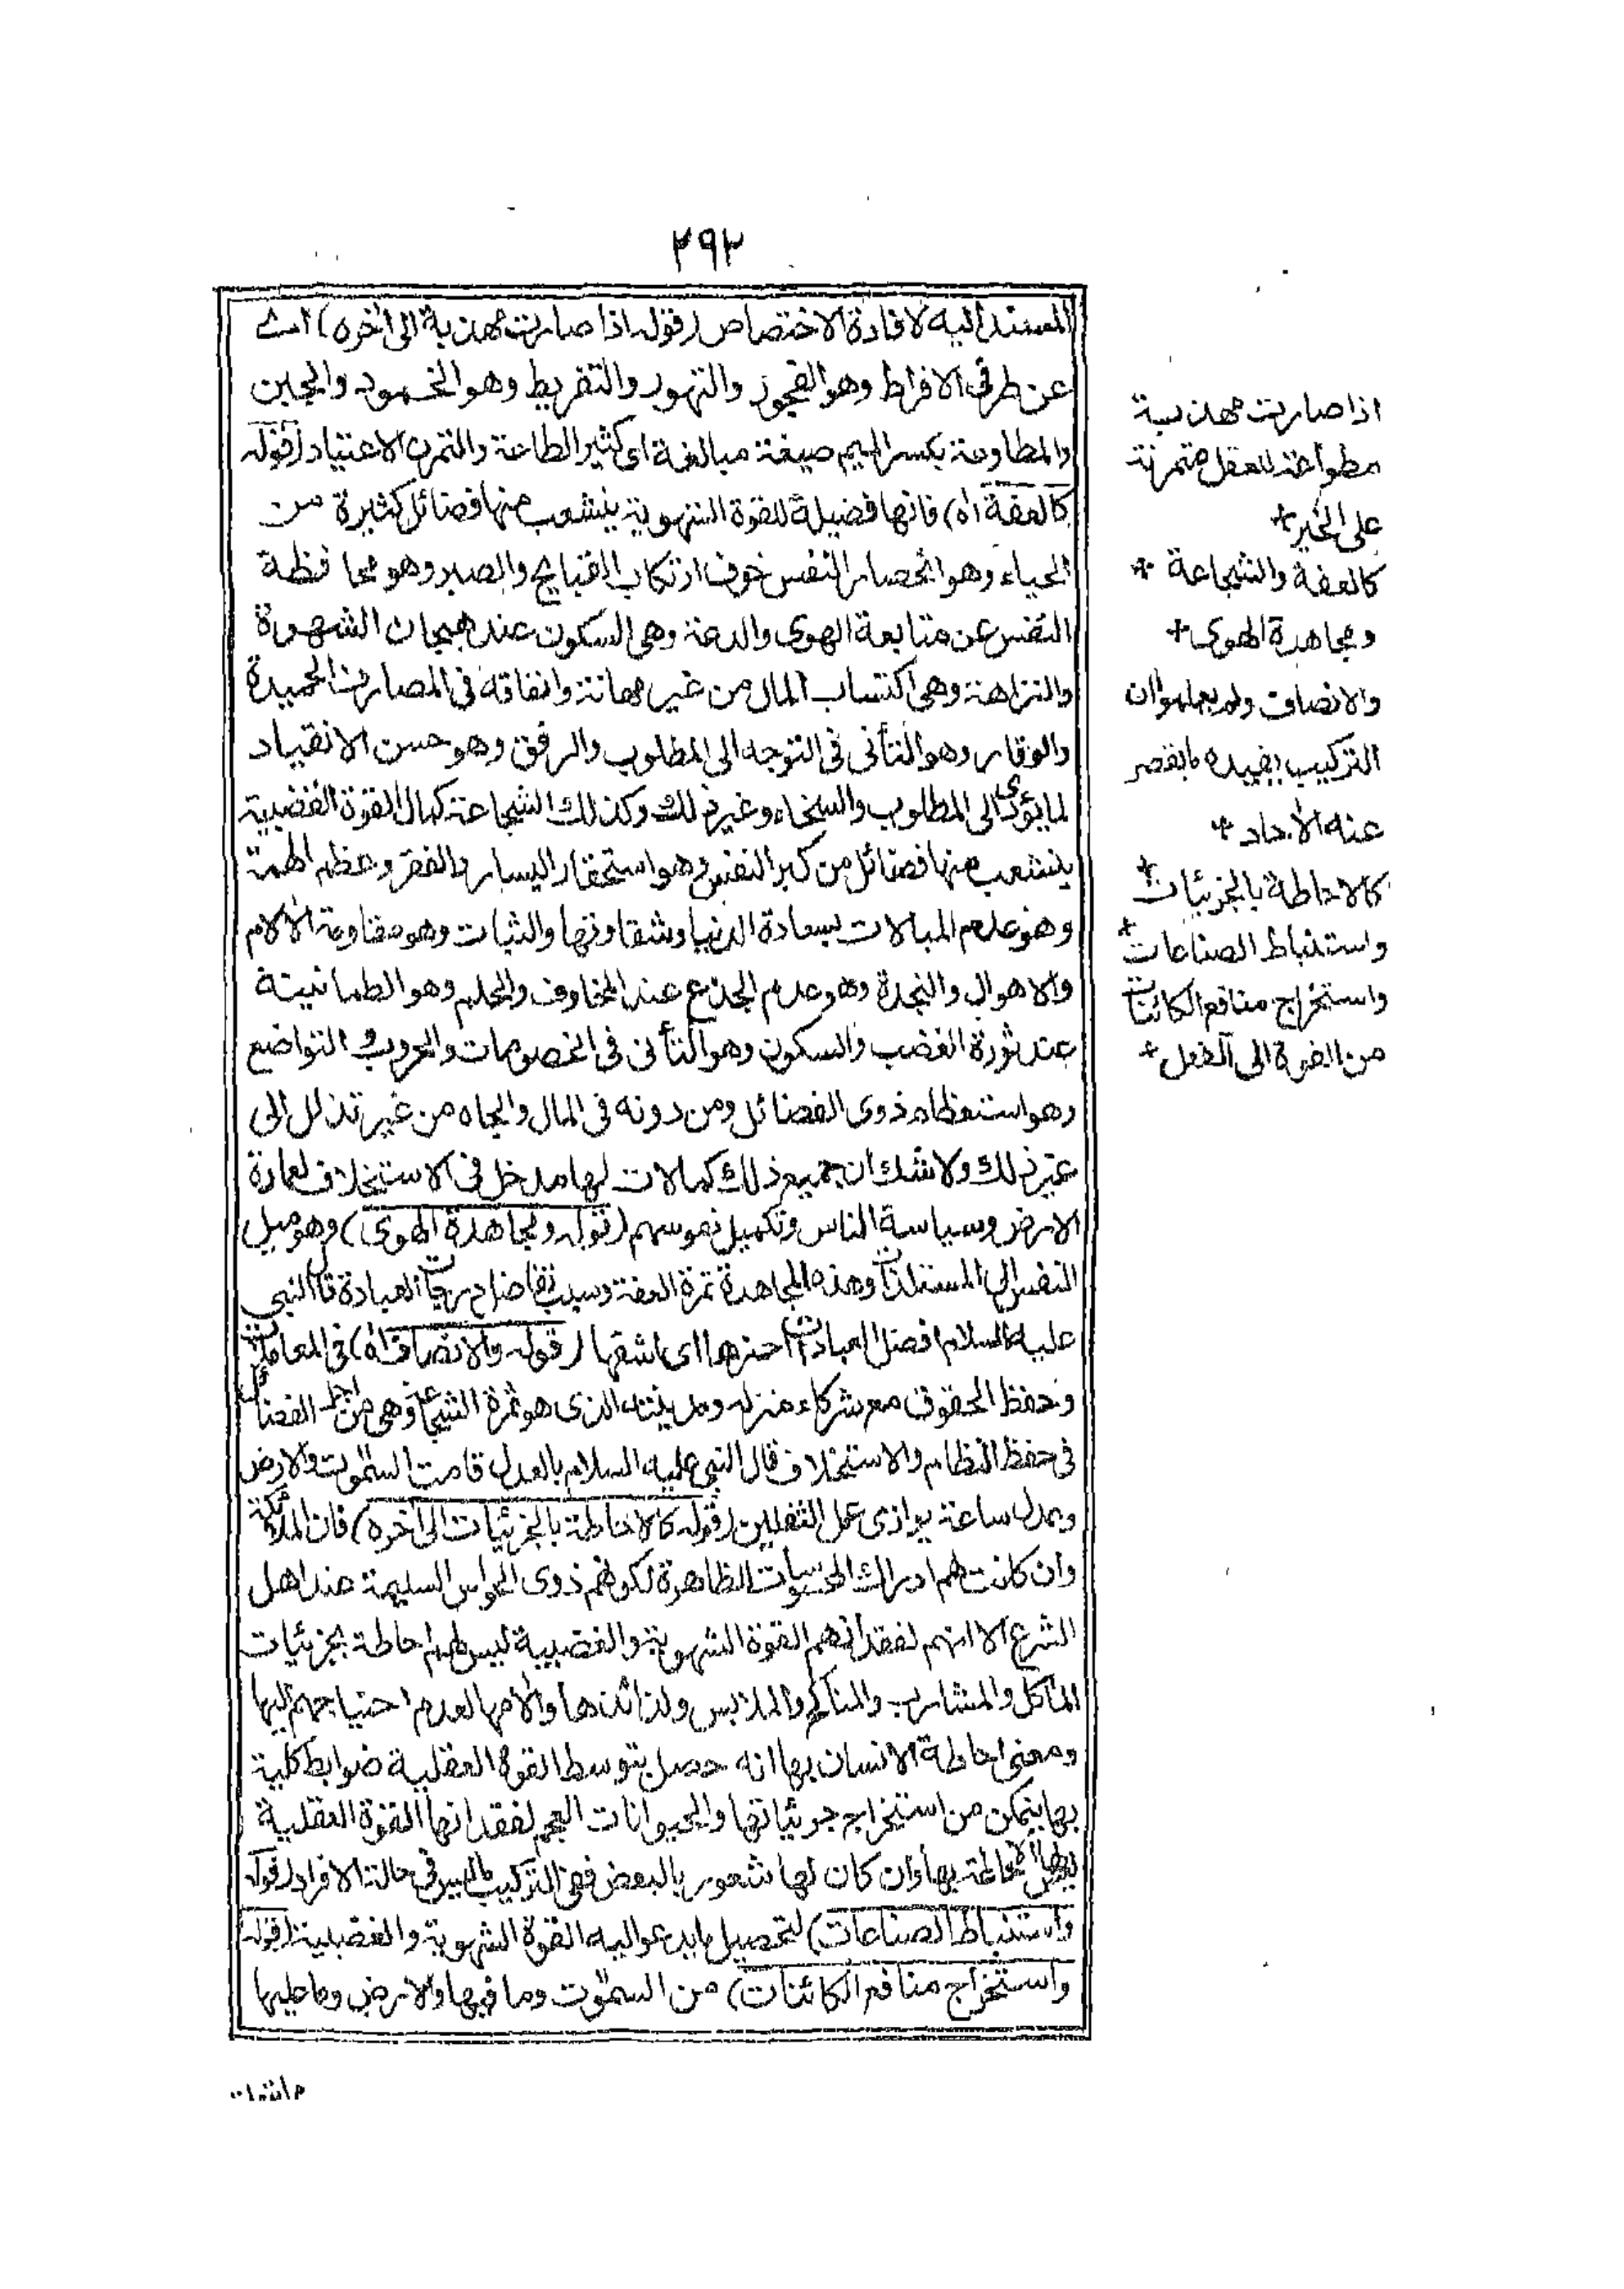 ٢٩٢
المسند اليه لافادة الاختصاص (قوله اذا صارت مهذبة الى اخره) اى
عن طرفى الافراط وهو الفجور والتهور والتفريط وهو الخمود والجبن
والمطاوعة بكسر الميم صيغة مبالغة اى كثير الطاعة والتمرن الاعتياد (قوله
كالعفة اه) فانها فضيلة للقوة الشهوية ينشعب منها فضائل كثيرة من
الحياء وهو انحصار النفس خوف ارتكاب القبايح والصبر وهو محافظة
النفس عن متابعة الهوى والدعة وهى السكون عند هيجان الشهوة
والنزاهة وهى اكتساب المال من غير مهانة وانفاقه فى المصارف الحميدة
والوقار وهو التأنى فى التوجه الى المطلوب والرفق وهو حسن الانقياد
لما يؤدى الى المطلوب والسخاء وغير ذلك وكذلك الشجاعة كمال القوة الغضبية
ينشعب منها فضائل من كبر النفس وهو استحقار اليسار والفقر وعظم الهمة
وهو عدم المبالات بسعادة الدنيا وشقاوتها والثبات وهو مقاومة الالام
والاهوال والنجدة وهو عدم الجذع عند المخاوف والحلم وهو الطمانينة
عند ثورة الغضب والسكون وهو التأنى فى الخصومات والحروب و التواضع
وهو استعظام ذوى الفضائل ومن دونه فى المال والجاه من غير تذلل الى
غير ذلك ولا شك ان جميع ذلك كمالات لها مدخل فى الاستخلاف لعمارة
الارض وسياسة الناس وتكميل نفوسهم (قوله ومجاهدة الهوى) وهو ميل
النفس الى المستلذات وهذه المجاهدة ثمرة العفة وسبب تفاضل درجات العبادة قال النبى
عليه السلام افضل العبادات احمزها اى اشقها (قوله والانصاف اه) فى المعاملات
وحفظ الحقوق مع شركاء منزله ومدينته الذى هو ثمرة الشجاعة وهى من اجل الفضائل
فى حفظ النظام والاستخلاف قال النبى عليه السلام بالعدل قامت السموت والارض
وعدل ساعة يوازى عمل الثقلين (قوله كالاحاطة بالجزئيات الى اخره) فان الملائكة
وان كانت لهم ادراك المحسوسات الظاهرة لكونهم ذوى الحواس السليمة عند اهل
الشرع الا انهم لفقدانهم القوة الشهوية والغضبية ليس لهم احاطة بجزئيات
الماكل والمشارب والمناكح والملابس ولذائذها والامها لعدم احتياجهم اليها
ومعنى احاطة الانسان بها انه حصل بتوسط القوة العقلية ضوابط كلية
بها يتمكن من استخراج جزئياتها والحيوانات العجم لفقدانها القوة العقلية
ليس لها احاطة بها وان كان لها شعور بالبعض ففى التركيب ما ليس فى حالة الافراد (قوله
واستنباط الصناعات) لتحصيل ما يدعو اليه القوة الشهوية والغضبية (قوله
واستخراج منافع الكائنات) من السموت وما فيها والارض وما عليها
اذا صارت مهذبة
مطواعة للعقل متمرنة
على الخير*
كالعفة والشجاعة *
ومجاهدة الهوى*
والانصاف ولم يعلموا ان
التركيب يفيد ما يقصر
عنه الآحاد *
كالاحاطة بالجزئيات*
واستنباط الصناعات*
واستخراج منافع الكائنات
من القوة الى الفعل*